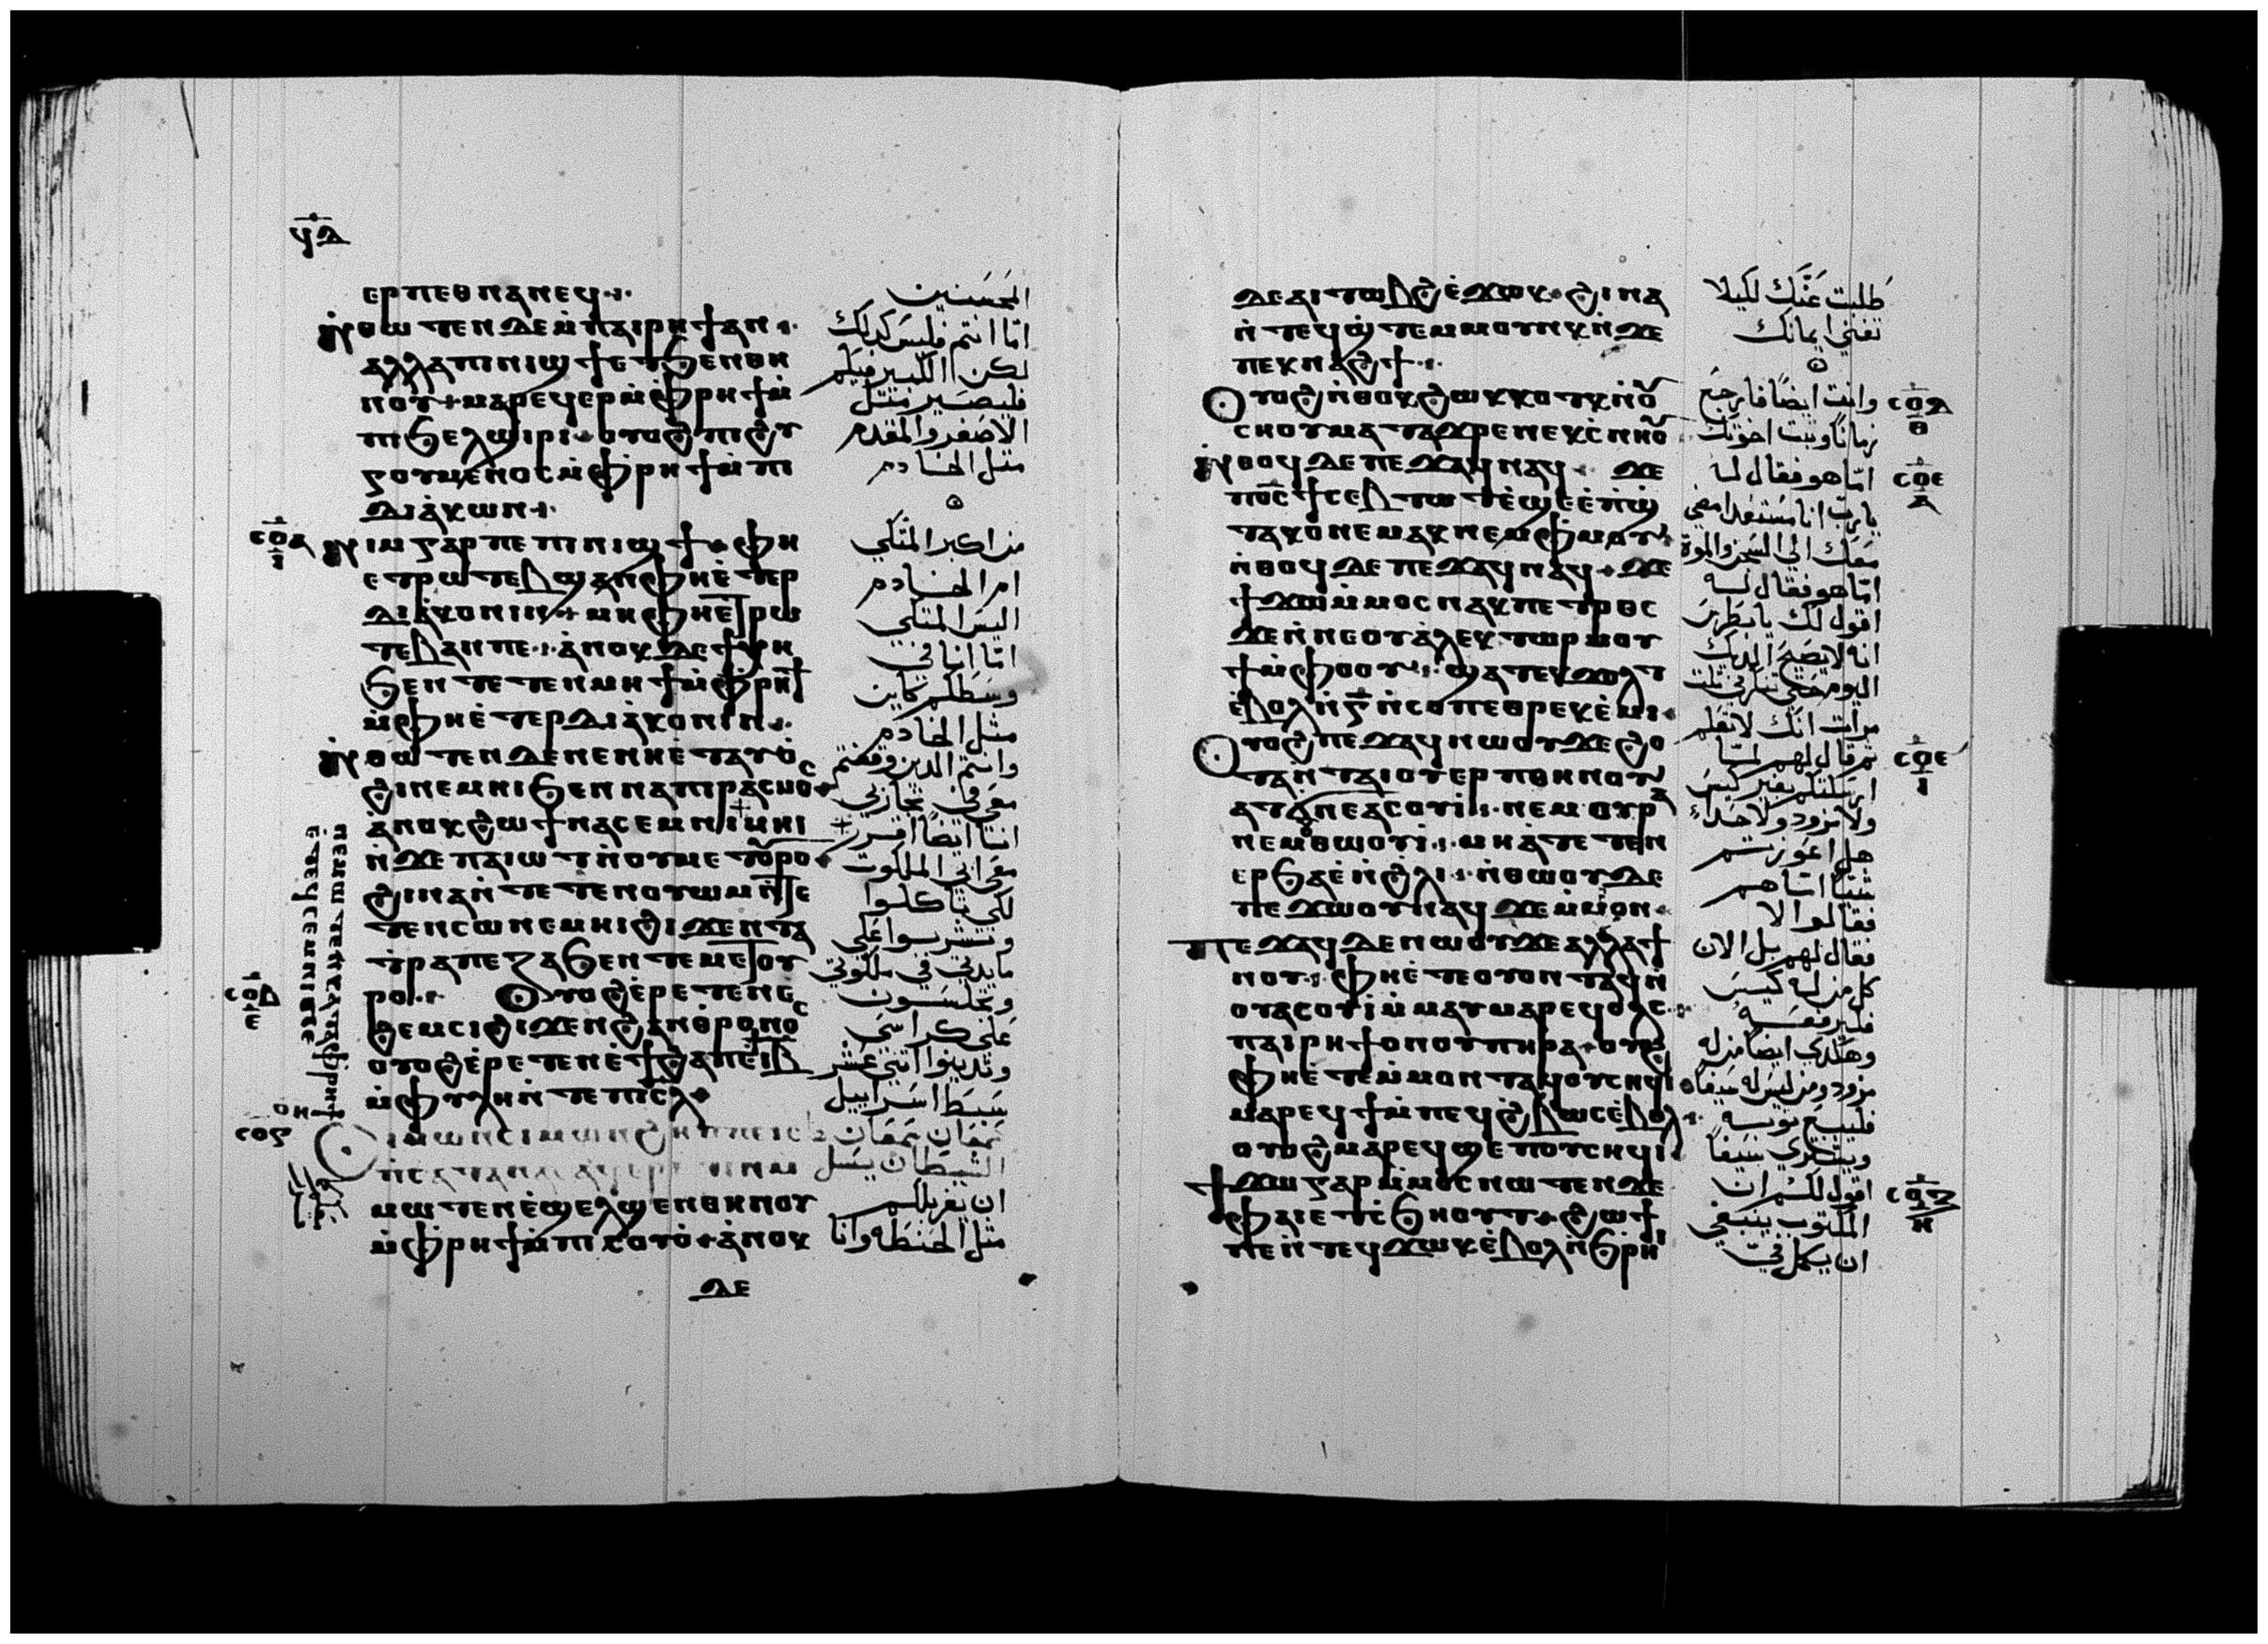 ⲉⲣⲡⲉⲑⲛⲁⲛⲉϥ
ⲛ̇ⲑⲱⲧⲉⲛ ⲇⲉ ⲙ̇ⲡⲁⲓⲣⲏϯ ⲁⲛ
ⲁⲗⲗⲁ ⲡⲓⲛⲓϣϯ ⲉⲧϧⲉⲛⲑⲏ
ⲛⲟⲩ ⲙⲁⲣⲉϥⲉⲣ ⲙ̇ⲫⲣⲏϯ ⲙ̇
ⲡⲓϧⲉⲗϣⲓⲣⲓ ⲟⲩⲟϩ ⲡⲓϩⲩ
ⲅⲟⲩⲙⲉⲛⲟⲥ ⲙ̇ⲫⲣⲏϯ ⲙ̇ⲡⲓ
ⲇⲓⲁⲕⲱⲛ
ⲛⲓⲙ ⲅⲁⲣ ⲡⲉ ⲡⲓⲛⲓϣϯ ⲫⲏ
ⲉⲧⲣⲱⲧⲉⲃ ϣⲁⲛ ⲫⲏⲉ̇ⲧⲉⲣ
ⲇⲓⲁⲕⲟⲛⲓⲛ ⲙⲏ ⲫⲏⲉⲧⲣⲱ
ⲧⲉⲃ ⲁⲛ ⲡⲉ ⲁ̇ⲛⲟⲕ ⲇⲉ ϯⲭⲏ
ϧⲉⲛ ⲧⲉⲧⲉⲛⲙⲏϯ ⲙ̇ⲫⲣⲏϯ
ⲙ̇ⲫⲏⲉ̇ⲧⲉⲣⲇⲓⲁⲕⲟⲛⲓⲛ
ⲛ̇ⲑⲱⲧⲉⲛ ⲇⲉ ⲛⲉ ⲛⲏⲉ̇ⲧⲁⲩⲟ̇
ϩⲓ ⲛⲉⲙⲏⲓ ϧⲉⲛ ⲛⲁⲡⲓⲣⲁⲥⲙⲟⲥ
ⲁ̇ⲛⲟⲕ ϩⲱ ϯⲛⲁⲥⲉⲙⲛⲓ ⲛⲏⲓ
ⲛ̇ϫⲉ ⲡⲁⲓⲱⲧ ⲛ̇ⲟⲩⲙⲉⲧⲟⲩⲣⲟ
ϩⲓⲛⲁ ⲛ̇ⲧⲉⲧⲉⲛⲟⲩⲱⲙ ⲛ̇ⲧⲉ
ⲧⲉⲛⲥⲱ ⲛⲉⲙⲏⲓ ϩⲓϫⲉⲛ ⲧⲁ
ⲧⲣⲁⲡⲉⲍⲁ ϧⲉⲛ ⲧⲉⲙⲉⲧⲟⲩ
ⲣⲟ ⲟⲩⲟϩ ⲉ̇ⲣⲉⲧⲉⲛⲉ
ϩⲉⲙⲥⲓ ϩⲓϫⲉⲛ ϩⲁⲛⲑ̇ⲣⲟⲛⲟⲥ
ⲟⲩⲟϩ ⲉ̇ⲣⲉⲧⲉⲛⲉ̇ϯϩⲁⲡ ⲉⲓⲃ
ⲙ̇ⲫⲩⲗⲏ ⲛ̇ⲧⲉ ⲡⲓⲥⲗ
ⲥⲓⲙⲱⲛ ⲥⲓⲙⲱⲛ ϩⲏⲡⲡⲉ ⲓⲥ
ⲙⲱⲧⲉⲛ ⲉ̇ϣⲉⲗϣⲉⲛⲑⲏⲛⲟⲩ
ⲙ̇ⲫⲣⲏϯ ⲙ̇ⲡⲓⲥⲟⲩⲟ̇ ⲁ̇ⲛⲟⲕ
ⲇⲉ
المحسنين
امّا انتم فليس كدلك
لكن الكبير فيكم
فليصير مثل
الاصغر والمقدم
مثل الخادم
من اكبر المتكي
ام الخادم
اليس المتكي
امّا انا في
وسطكم كاين
مثل الخادم
وانتم الدين وقفتم
معي في تجاربي
انا ايضًا اقرر
معي ابي الملكوت
لكي تاكلوا
وتشربوا علي
مايدتي في ملكوتي
وتجلسون
علي كراسي
وتدينوا اثني عشر
سبط اسراييل
سمعان سمعان
الشيطان يسل
ان يغربلكم
مثل الحنطه وانا
ϫⲉ ⲁⲓⲧⲱⲃϩ ⲉ̇ϫⲱⲕ ϩⲓⲛⲁ
ⲛ̇ⲧⲉϥϣ̇ⲧⲉⲙⲙⲟⲩⲛⲕ ⲛ̇ϫⲉ
ⲡⲉⲕⲛⲁϩϯ
ⲟⲩⲟϩ ⲛ̇ⲑⲟⲕ ϩⲱⲕ ⲕⲟⲧⲕ ⲛ̇ⲟⲩ
ⲥⲛⲟⲩ ⲙⲁⲧⲁϫⲣⲉ ⲛⲉⲕⲥ̇ⲛⲏⲟⲩ
ⲛ̇ⲑⲟϥ ⲇⲉ ⲡⲉϫⲁϥ ⲛⲁϥ ϫⲉ
ⲡⲟⲥ ϯⲥⲉⲃⲧⲱⲧ ⲉ̇ϣⲉ ⲉ̇ⲡϣ̇
ⲧⲁⲕⲟ ⲛⲉⲙⲁⲕ ⲛⲉⲙ ⲫ̇ⲙⲟⲩ
ⲛ̇ⲑⲟϥ ⲇⲉ ⲡⲉϫⲁϥ ⲛⲁϥ ϫⲉ
ϯϫⲱ ⲙ̇ⲙⲟⲥ ⲛⲁⲕ ⲡⲉⲧⲣⲟⲥ
ϫⲉ ⲛ̇ⲛⲉ ⲟⲩⲁ̇ⲗⲉⲕⲧⲱⲣ ⲙⲟⲩ
ϯ ⲙ̇ⲫⲟⲟⲩ ϣⲁⲧⲉⲕϫⲟⲗⲧ
ⲉ̇ⲃⲟⲗ ⲛ̇ⲅ̅ ⲛ̇ⲥⲟⲡ ⲉⲑⲣⲉⲕⲉ̇ⲙⲓ
ⲟⲩⲟϩ ⲡⲉϫⲁϥ ⲛⲱⲟⲩ ϫⲉ ϩⲟ
ⲧⲁⲛ ⲧⲁⲓⲟⲩⲉⲣⲡ ⲑⲏⲛⲟⲩ
ⲁⲧϭⲛⲉ ⲁⲥⲟⲩⲓ̇ ⲛⲉⲙ ⲡⲏⲣⲁ
ⲛⲉⲙ ⲑⲱⲟⲩⲓ̇ ⲙⲏ ⲁ̇ⲧⲉⲧⲉⲛ
ⲉⲣϧⲁⲉ̇ ⲛ̇ϩⲗⲓ ⲛ̇ⲑⲱⲟⲩ ⲇⲉ
ⲡⲉϫⲱⲟⲩ ⲛⲁϥ ϫⲉ ⲙ̇ⲙⲟⲛ
ⲡⲉϫⲁϥ ⲇⲉ ⲛⲱⲟⲩ ϫⲉ ⲁⲗⲗⲁ ϯ
ⲛⲟⲩ ⲫⲏⲉ̇ⲧⲉ ⲟⲩⲟⲛ ⲧⲁϥ ⲛ̇
ⲟⲩⲁⲥⲟⲩⲓ̇ ⲙ̇ⲙⲁⲩ ⲙⲁⲣⲉϥⲟⲗⲥ
ⲡⲁⲓⲣⲏϯ ⲟⲛ ⲟⲩⲡⲏⲣⲁ ⲟⲩⲟϩ
ⲫⲏⲉ̇ⲧⲉ ⲙ̇ⲙⲟⲛⲧⲁϥ ⲟⲩⲥⲏϥⲓ
ⲙⲁⲣⲉϥϯ ⲙ̇ⲡⲉϥϩ̇ⲃⲱⲥ ⲉ̇ⲃⲟⲗ
ⲟⲩⲟϩ ⲙⲁⲣⲉϥϣⲉⲡ ⲟⲩⲥⲏϥⲓ
ϯϫⲱ ⲅⲁⲣ ⲙ̇ⲙⲟⲥ ⲛⲱⲧⲉⲛ ϫⲉ
ⲫⲁⲓ ⲉⲧⲥ̇ϧⲏⲟⲩⲧ ϩⲱϯ
ⲡⲉ ⲛ̇ⲧⲉϥϫⲱⲕ ⲉ̇ⲃⲟⲗ ⲛ̇ϧ̇ⲣⲏⲓ
طلبت عنك لكيلا
تفني ايمانك
وانت ايضًا فارجع
زمانًا وثبت اخوتك
امّا هو فقال له
يا رب انا مستعد امضي
معك الي السجن والموت
امّا هو فقال له
اقول لك يا بطرس
انه لا يصيح الديك
اليوم حتي تنكرني تلت
مرات انك لا تعلم
ثم قال لهم لمّا
ارسلتكم بغير كيس
ولا مزود ولا حداء
هل اعوزتم
شيًا امّا هم
فقالوا لا
فقال لهم بل الان
كل من له كيس
فليرفعه
وهكدي ايضا من له
مزود ومن ليس له سيفا
فليبيع ثوبه
ويشتري سيفًا
اقول لكم ان
المكتوب ينبغي
ان يكمل فيّ